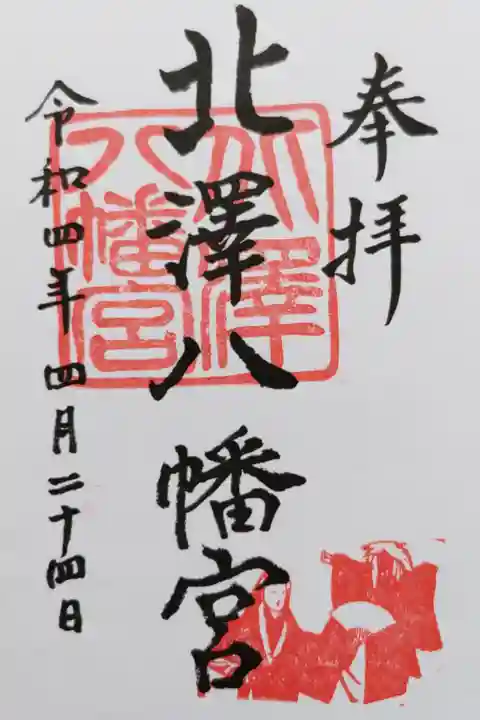 奉拝
北澤八幡宮
北澤
八幡宮
令和四年 四月二十四日